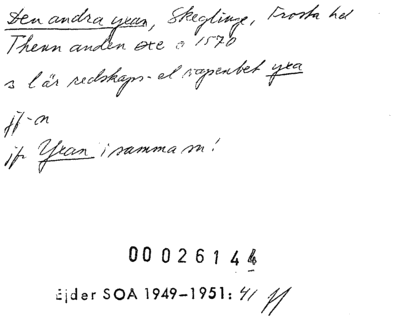 Den andra yxan, Skeglinge, Frosta hd
Thenn anden øxe o 1570
s l är redskaps- el vapenbet yxa
ff-n
jfr Yxan i samma sn!
00026144
Ejder SOA 1949-1951: 41 ff